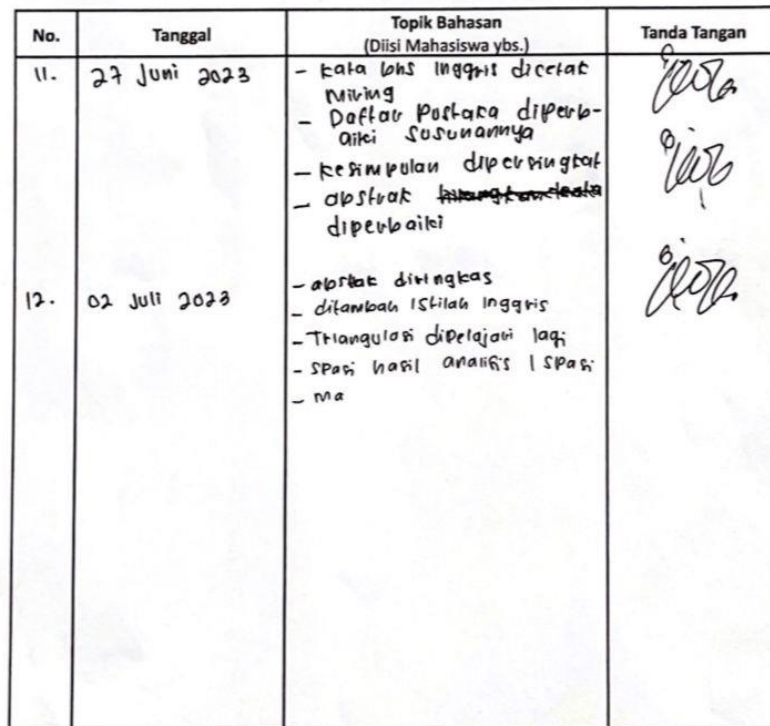 No. Tanggal Topik Bahasan Tanda Tangan
(Diisi Mahasiswa ybs.)
11. 27 Juni 2023 - kata bhs Inggris dicetak
miring
- Daftar Pustaka diperb-
aiki susunannya
- kesimpulan dipersingkat
- abstrak
diperbaiki
12. 02 Juli 2023 - abstrak diringkas
- ditambah istilah Inggris
- Triangulasi dipelajari lagi
- spasi hasil analisis 1 spasi
- Ma